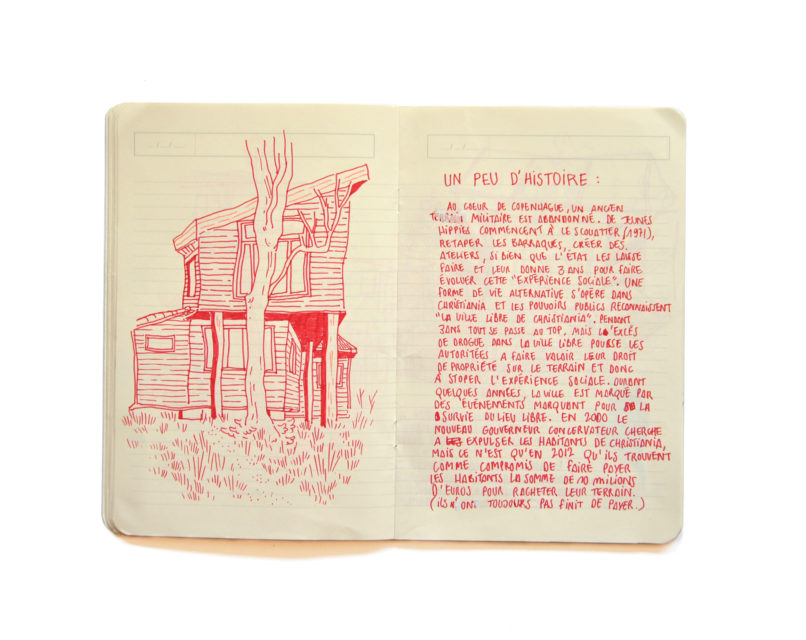 UN PEU D'HISTOIRE :
AU COEUR DE COPENHAGUE, UN ANCIEN
TERRAIN MILITAIRE EST ABANDONNÉ. DE JEUNES
HIPPIES COMMENCENT À LE SCOUATTER (1971),
RETAPER LES BARRAQUES, CRÉER DES
ATELIERS, SI BIEN QUE L'ÉTAT LES LAISSE
FAIRE ET LEUR DONNE 3 ANS POUR FAIRE
ÉVOLUER CETTE "EXPÉRIENCE SOCIALE". UNE
FORME DE VIE ALTERNATIVE S'OPÈRE DANS
CHRISTIANIA ET LES POUVOIRS PUBLICS RECONNAISSENT
"LA VILLE LIBRE DE CHRISTIANIA". PENDANT
3 ANS TOUT SE PASSE AU TOP, MAIS L'EXCÉS
DE DROGUE DANS LA VILLE LIBRE POUSSE LES
AUTORITÉES A FAIRE VALOIR LEUR DROIT
DE PROPRIÉTÉ SUR LE TERRAIN ET DONC
À STOPER L'EXPÉRIENCE SOCIALE. DURANT
QUELQUES ANNÉES, LA VILLE EST MARQUÉ PAR
DES ÉVÉNEMENTS MARQUANT POUR LA
SURVIE DU LIEU LIBRE. EN 2000 LE
NOUVEAU GOUVERNEUR CONCERVATEUR CHERCHE
A EXPULSER LES HABITANTS DE CHRISTIANIA,
MAIS CE N'EST QU'EN 2012 QU'ILS TROUVENT
COMME COMPROMIS DE FAIRE PAYER
LES HABITANTS LA SOMME DE 10 MILIONS
D'EUROS POUR RACHETER LEUR TERRAIN.
(ILS N'ONT TOUJOURS PAS FINIT DE PAYER.)